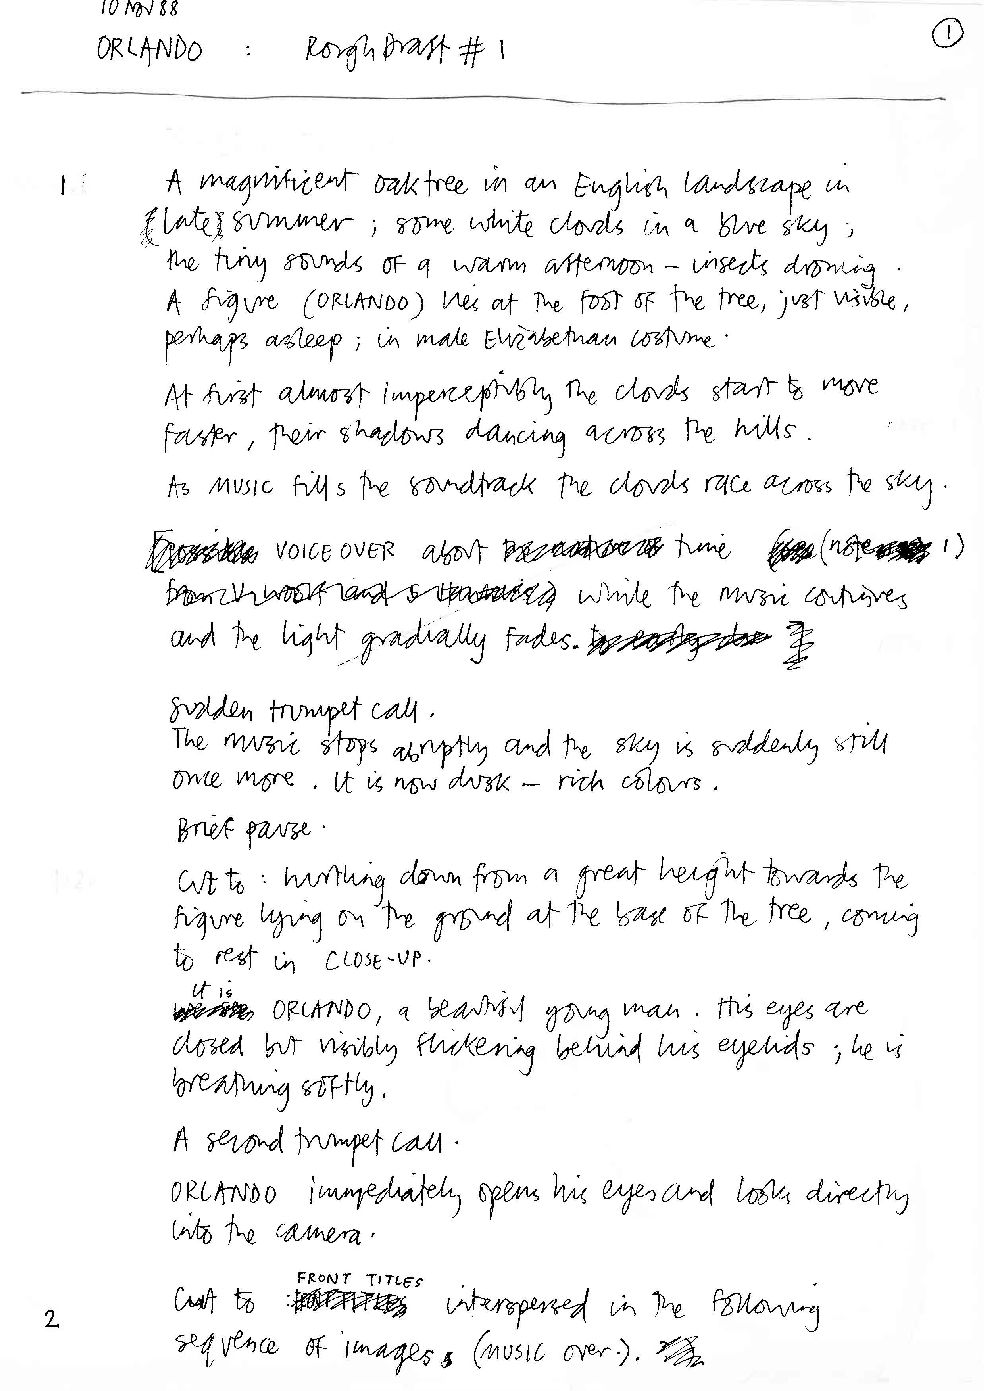 10 Nov 88
ORLANDO : Rough Draft # 1
1
1 A magnificent oak tree in an English landscape in
[late] summer ; some white clouds in a blue sky ;
the tiny sounds of a warm afternoon – insects droning .
A figure (ORLANDO) lies at the foot of the tree, just visible,
perhaps asleep ; in male Elizabethan costume .
At first almost imperceptibly the clouds start to move
faster , their shadows dancing across the hills .
As MUSIC fills the soundtrack the clouds race across the sky .
VOICE OVER about time (note 1)
while the music continues
and the light gradually fades.
Sudden trumpet call .
The music stops abruptly and the sky is suddenly still
once more . It is now dusk – rich colours .
Brief pause .
Cut to : hurtling down from a great height towards the
figure lying on the ground at the base of the tree , coming
to rest in CLOSE-UP .
it is
ORLANDO, a beautiful young man . His eyes are
closed but visibly flickering behind his eyelids ; he is
breathing softly .
A second trumpet call .
ORLANDO immediately opens his eyes and looks directly
into the camera .
FRONT TITLES
2 Cut to interspersed in the following
sequence of images, (MUSIC over.).